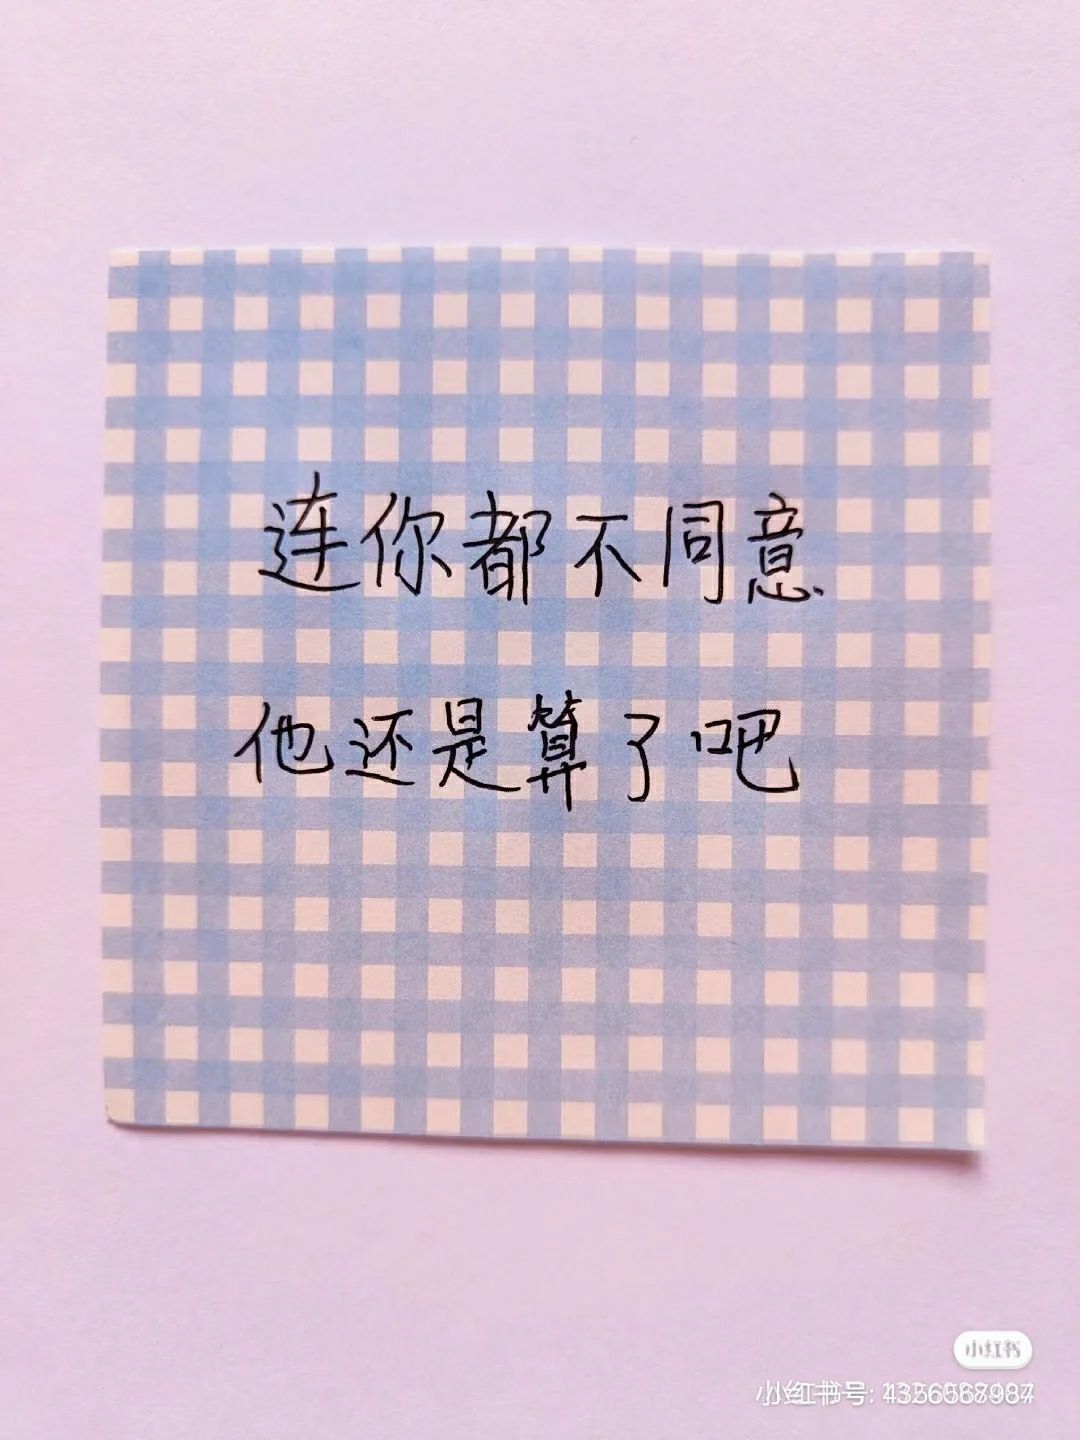 连你都不同意
他还是算了吧
小红书
小红书号: